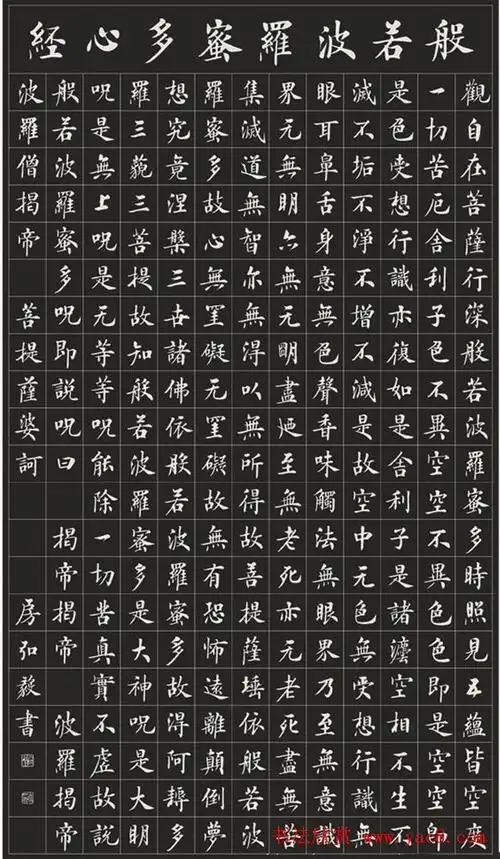 般若波羅蜜多心經
觀自在菩薩行深般若波羅蜜多時照見五蘊皆空度
一切苦厄舍利子色不異空空不異色色即是空空即
是色受想行識亦復如是舍利子是諸灋空相不生不
滅不垢不淨不增不減是故空中无色無受想行識無
眼耳鼻舌身意無色聲香味觸法無眼界乃至無意識
界无無明亦無无明盡乃至無老死亦无老死盡無苦
集滅道無智亦無得以無所得故菩提薩埵依般若波
羅蜜多故心無罣礙无罣礙故無有恐怖遠離顛倒夢
想究竟涅槃三世諸佛依般若波羅蜜多故得阿耨多
羅三藐三菩提故知般若波羅蜜多是大神咒是大明
咒是無上咒是无等等咒能除一切苦真實不虛故說
般若波羅蜜多咒即說咒曰 揭帝揭帝 波羅揭帝
波羅僧揭帝 菩提薩婆訶 房弘毅書
书法欣赏 www.yac8.com